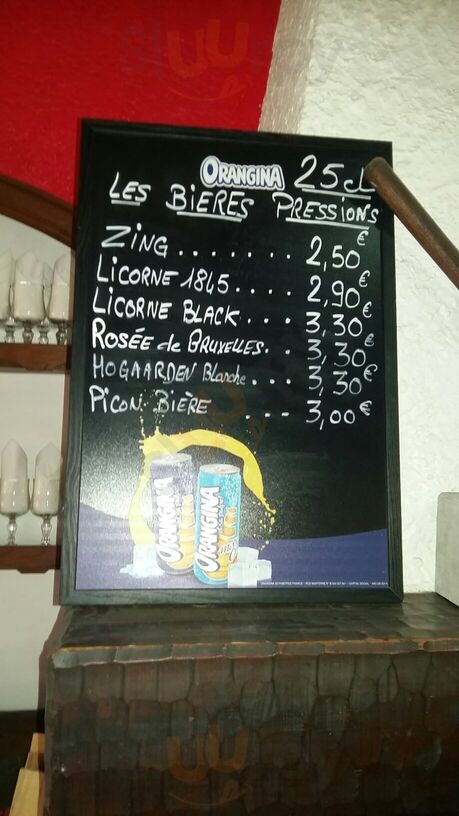 ORANGINA 25cl
LES BIERES PRESSIONS
ZING ....... 2,50€
LICORNE 1845.... 2,90€
LICORNE BLACK... 3,30€
ROSÉE de BRUXELLES.. 3,30€
HOGAARDEN Blanche... 3,30€
PICON BIÈRE .--- 3,00€
ORANGINA
ORANGINA